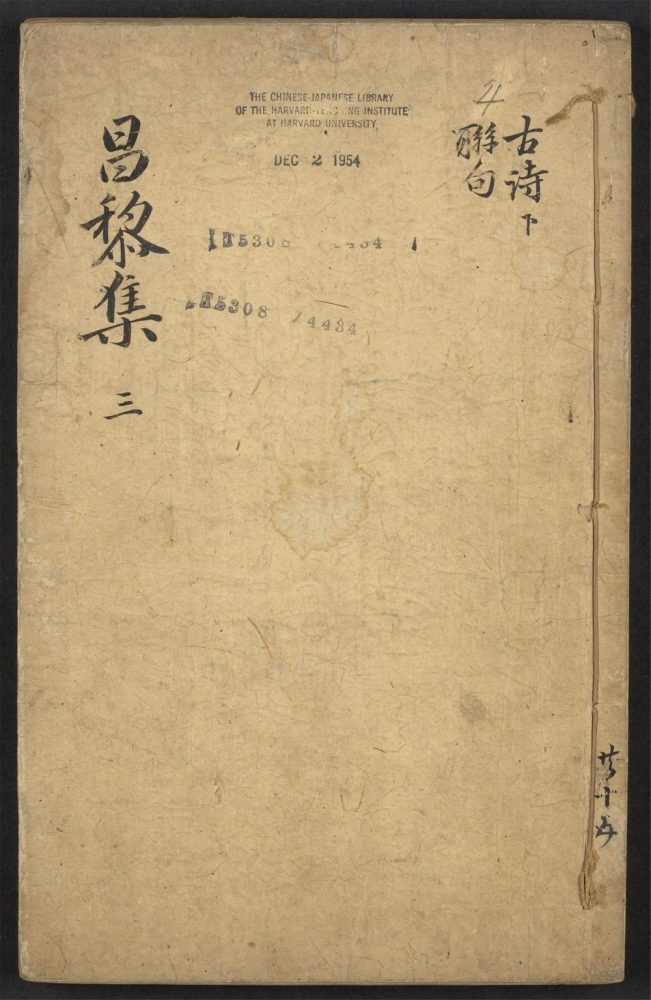 古诗下
聯句
4
THE CHINESE-JAPANESE LIBRARY
OF THE HARVARD-YENCHING INSTITUTE
AT HARVARD UNIVERSITY
DEC 2 1954
5308
5308 /4434
昌黎集 三
共十五